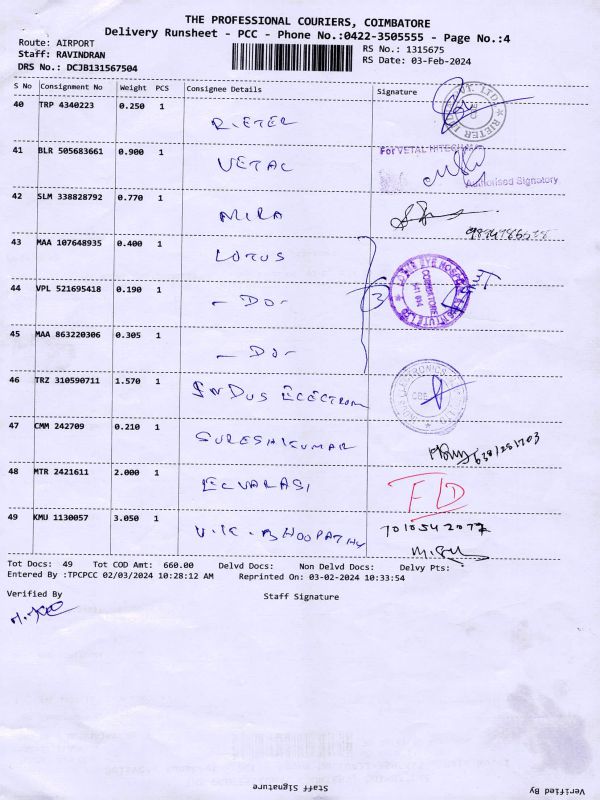 THE PROFESSIONAL COURIERS, COIMBATORE
Delivery Runsheet - PCC - Phone No.:0422-3505555 - Page No.:4
Route: AIRPORT
RS No.: 1315675
Staff: RAVINDRAN
RS Date: 03-Feb-2024
DRS No.: DCJB131567504
S No Consignment No Weight PCS Consignee Details Signature
40 TRP 4340223 0.250 1 RIETER
41 BLR 505683661 0.900 1 VETAL For VETAL HITECH
Authorised Signatory
42 SLM 338828792 0.770 1 MIRA
43 MAA 107648935 0.400 1 LOTUS
44 VPL 521695418 0.190 1 - DO - 3
45 MAA 863220306 0.305 1 - DO -
46 TRZ 310590711 1.570 1 INDUS ELECTRON
47 CMM 242709 0.210 1 SURESHKUMAR
48 MTR 2421611 2.000 1 ELVARASI FD
49 KMU 1130057 3.050 1 V.K. BHOOPATHY 7010542077
Tot Docs: 49 Tot COD Amt: 660.00 Delvd Docs: Non Delvd Docs: Delvy Pts:
Entered By :TPCPCC 02/03/2024 10:28:12 AM Reprinted On: 03-02-2024 10:33:54
Verified By Staff Signature
Staff Signature Verified By